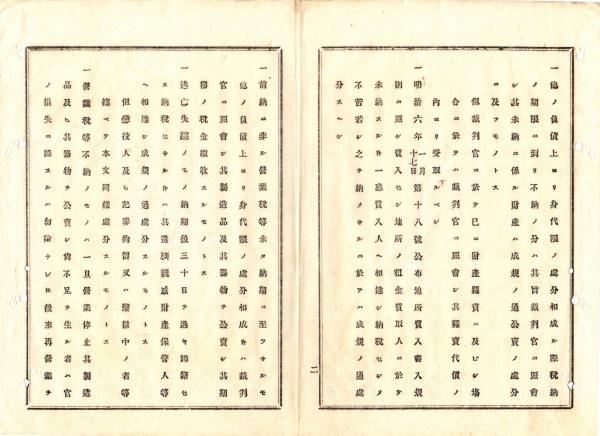 一他ノ負債上ヨリ身代限ノ処分相成ル際税納
ノ期限ニ到リ不納ノ分ハ其旨裁判官ニ照会
シ其未納ニ係ル財産ハ成規ノ通公売ノ処分
ニ及フモノトス
但裁判官ニ於テ已ニ財産糶売ニ及ビシ場
合ニ於テハ裁判官ニ照会シ其糶売代価ノ
内ヨリ受取ルベシ
一明治六年一月十七日第十八號公布地所質入書入規
則ニ照シ質入セシ地所ノ租金質取人ニ於テ
未納スルトキハ一應質入人ヘ相達シ納税セシメ
不苦若シ之ヲ納メサルニ於テハ成規ノ通処
分スヘシ
二
一前納ニ非ル營業税等未タ納期ニ至ラサルモ
他ノ負債上ヨリ身代限ノ処分相成トキハ裁判
官ニ照會シ其製造品及其器物ヲ公賣シ其期
節ノ税金徴収スルモノトス
一逃亡失踪ノモノ納期後三十日ヲ過キ歸籍セ
ス納税セサルトキハ其遺族親戚財産保管人等
ヘ相達シ成規ノ通處分スルモノトス
但懲役人及ヒ記聯拘留又ハ懲獄中ノ者等
總ベテ本文同樣處分スルモノトス
一營業税等不納ノモノハ一旦營業停止其製造
品及ヒ其器物ヲ公賣シ尚不足ヲ生ル者ハ官
ノ損失ニ歸スルハ勿論ナレトモ後來再營業ヲ